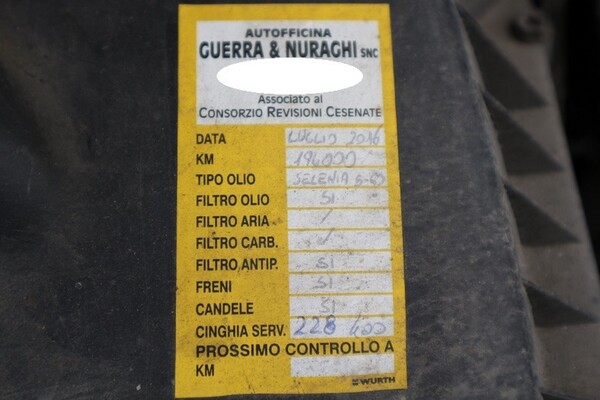 AUTOFFICINA
GUERRA & NURAGHI SNC
Associato al
CONSORZIO REVISIONI CESENATE
DATA LUGLIO 2016
KM 194000
TIPO OLIO SELENIA
FILTRO OLIO SI
FILTRO ARIA /
FILTRO CARB. /
FILTRO ANTIP. SI
FRENI SI
CANDELE SI
CINGHIA SERV. 228 400
PROSSIMO CONTROLLO A
KM
WÜRTH